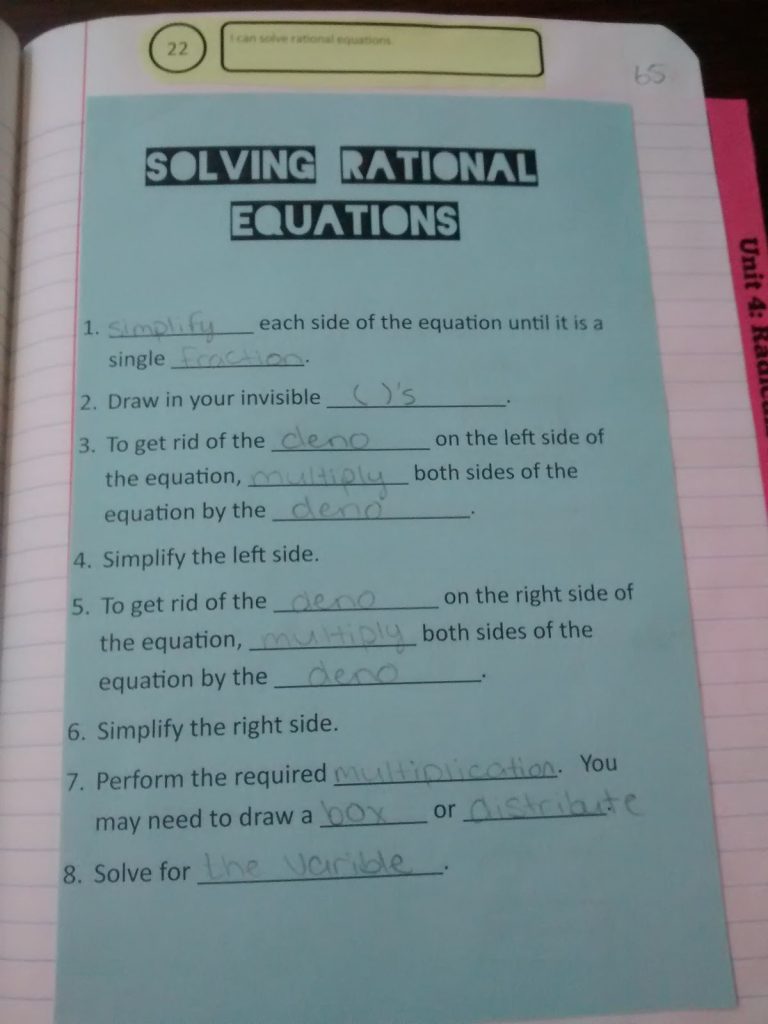 22
I can solve rational equations.
65
SOLVING RATIONAL
EQUATIONS
1. simplify each side of the equation until it is a
single fraction.
2. Draw in your invisible ( )'s.
3. To get rid of the deno on the left side of
the equation, multiply both sides of the
equation by the deno.
4. Simplify the left side.
5. To get rid of the deno on the right side of
the equation, multiply both sides of the
equation by the deno.
6. Simplify the right side.
7. Perform the required multiplication. You
may need to draw a box or distribute.
8. Solve for the varible.
Unit 4: